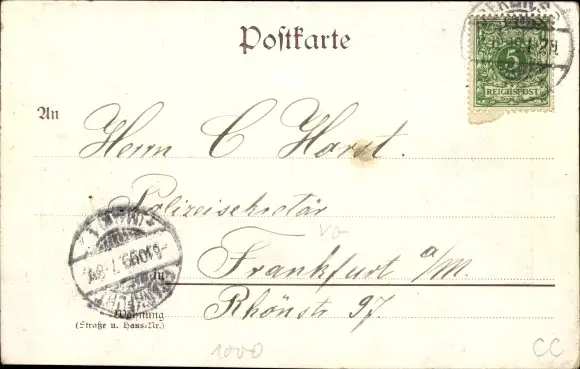 Postkarte
5
REICHSPOST
An
Herrn C Horst.
Polizeisekretär
Frankfurt a/M.
in
Rhönstr 97.
Wohnung
(Straße u. Haus-Nr.)
1000
CC